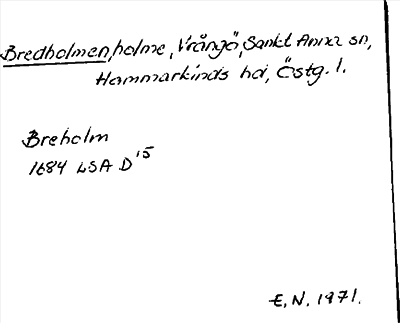 Bredholmen, holme, Vrångö, Sankt Anna sn,
Hammarkinds hd, Östg. l.
Breholm
1684 LSA D 15
E.N. 1971.